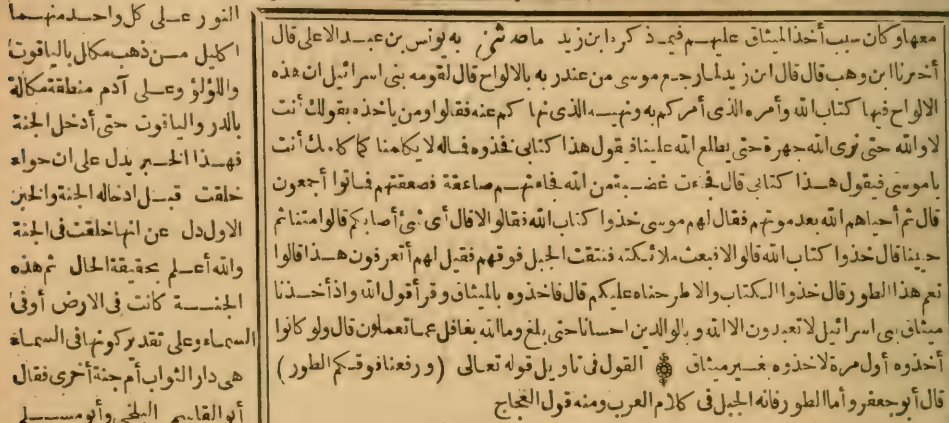 معها وكان سبب أخذ الميثاق عليهم فيما ذكره ابن زيد ما حدثني به يونس بن عبد الاعلى قال
أخبرنا ابن وهب قال قال ابن زيد لما رجع موسى من عند ربه بالالواح قال لقومه بنى اسرائيل ان هذه
الالواح فيها كتاب الله وأمره الذى أمركم به ونهيه الذى نهاكم عنه فقالوا ومن ياخذه بقولك أنت
لا والله حتى نرى الله جهرة حتى يطلع الله علينا فيقول هذا كتابى فخذوه فماله لا يكلمنا كما كلمك أنت
ياموسى فيقول هذا كتابى قال فجاءت غضبة من الله فجاءتهم صاعقة فصعقتهم فماتوا أجمعون
قال ثم أحياهم الله بعد موتهم فقال لهم موسى خذوا كتاب الله فقالوا لا قال أى شئ أصابكم قالوا متنا ثم
حيينا قال خذوا كتاب الله قالوا لا فبعث ملائكته فنتقت الجبل فوقهم فقيل لهم أتعرفون هذا قالوا
نعم هذا الطور قال خذوا الكتاب والا طرحناه عليكم قال فاخذوه بالميثاق وقرأ قول الله واذ أخذنا
ميثاق بنى اسرائيل لا تعبدون الا الله وبالوالدين احسانا حتى بلغ وما الله بغافل عما تعملون قال ولو كانوا
أخذوه أول مرة لاخذوه بغير ميثاق ۞ القول فى تاويل قوله تعالى (ورفعنا فوقكم الطور)
قال أبو جعفر وأما الطور فانه الجبل فى كلام العرب ومنه قول العجاج
النور على كل واحد منهما
اكليل من ذهب مكلل بالياقوت
واللؤلؤ وعلى آدم منطقة مكللة
بالدر والياقوت حتى أدخل الجنة
فهذا الخبر يدل على ان حواء
خلقت قبل ادخاله الجنة والخبر
الاول دل عن انها خلقت فى الجنة
والله أعلم بحقيقة الحال ثم هذه
الجنة كانت فى الارض أو فى
السماء وعلى تقدير كونها فى السماء
هى دار الثواب أم جنة أخرى فقال
أبو القاسم البلخى وأبو مسلم